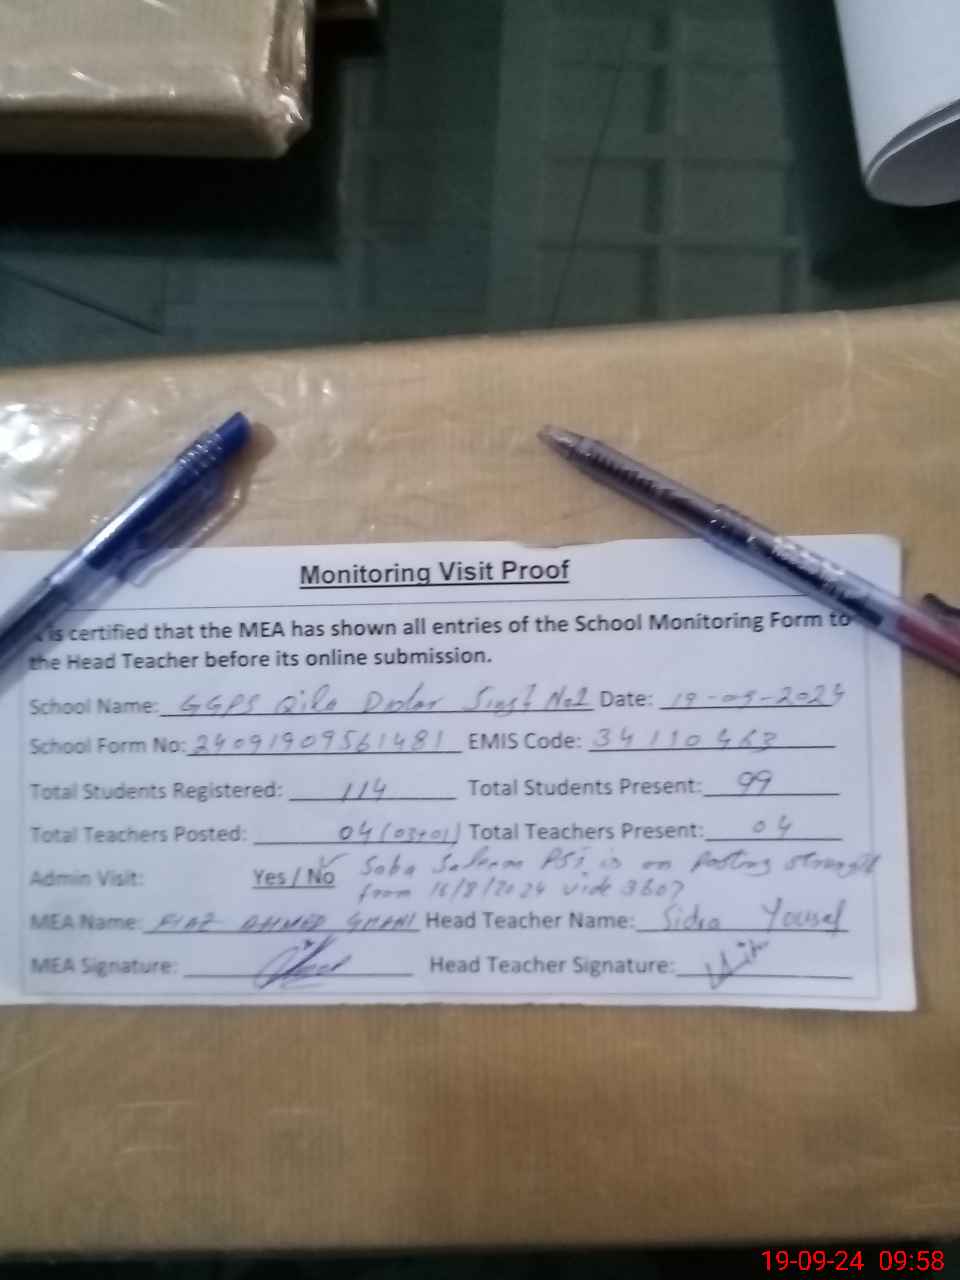 Monitoring Visit Proof
is certified that the MEA has shown all entries of the School Monitoring Form to
the Head Teacher before its online submission.
School Name: GGPS Qila Didar Singh No1 Date: 19-09-2024
School Form No: 24091909561481 EMIS Code: 34110463
Total Students Registered: 114 Total Students Present: 99
Total Teachers Posted: 04 (03+01) Total Teachers Present: 04
Admin Visit: Yes / No Saba Saleem PST is on posting strength
from 16/8/2024 vide 3607
MEA Name: AHMED GHANI Head Teacher Name: Sidra Yousaf
MEA Signature: Head Teacher Signature:
19-09-24 09:58